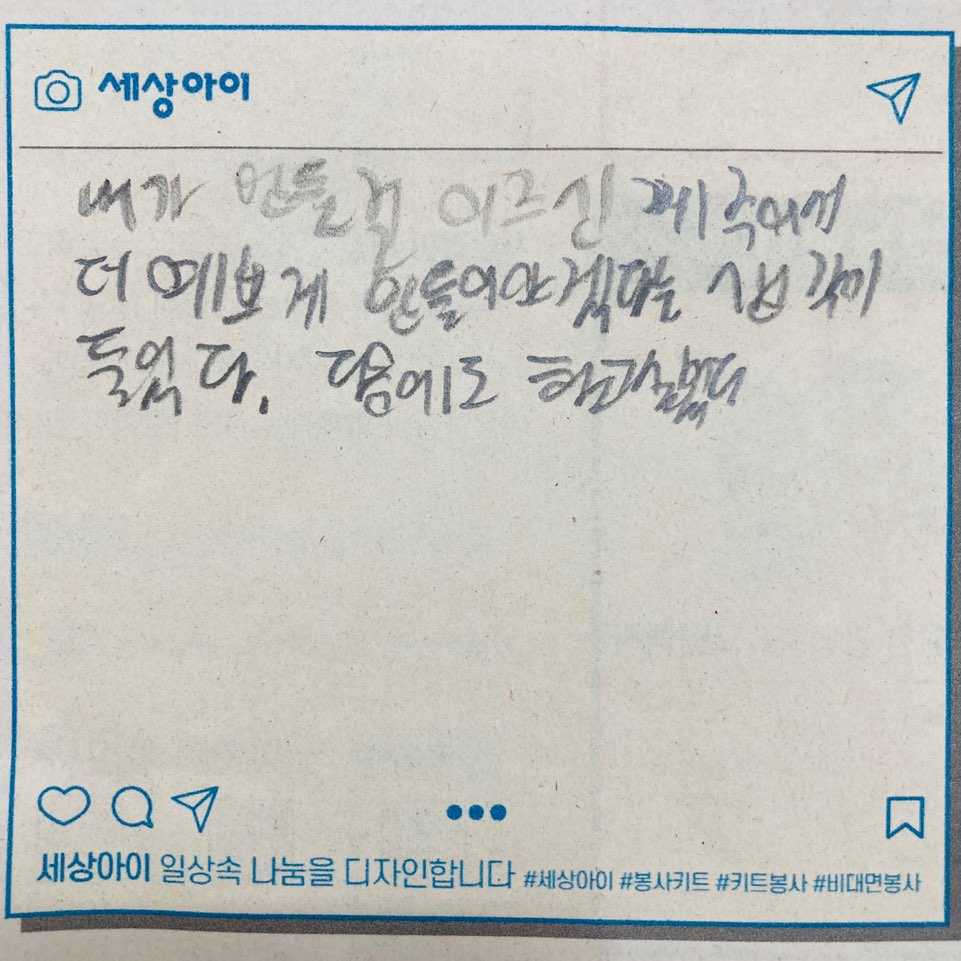 세상아이
내가 만들걸 이르신
더 예쁘게 만들어야겠다는 생각이
들었다. 다음에도 하고싶었다
세상아이 일상속 나눔을 디자인합니다 #세상아이 #봉사키트 #키트봉사 #비대면봉사